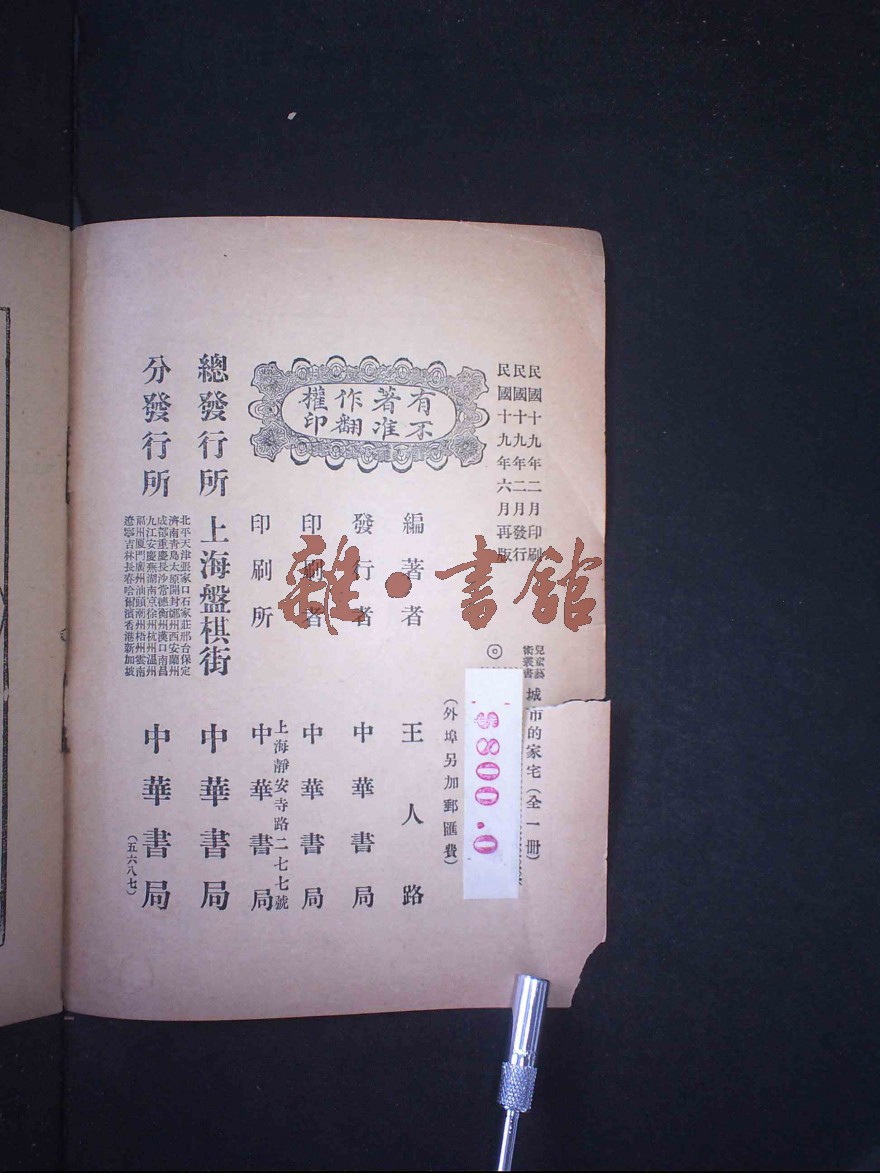 民國十九年二月印刷
民國十九年二月發行
民國十九年六月再版
兒童藝
術叢書
城市的家宅（全一冊）
◎
$800.0
（外埠另加郵匯費）
有不
著准
作翻
權印
編著者 王人路
發行者 中華書局
印刷者 中華書局
上海靜安寺路二七七號
印刷所 中華書局
總發行所 上海盤棋街 中華書局
分發行所
北平天津張家口石家莊邢台保定
濟南青島太原開封鄭州西安蘭州
成都重慶長沙常德衡州漢口南昌
九江安慶蕪湖南京徐州杭州溫州
福州廈門廣州汕頭潮州梧州雲南
遼寧吉林長春哈爾濱香港新加坡
中華書局
（五六八七）
雜·書館